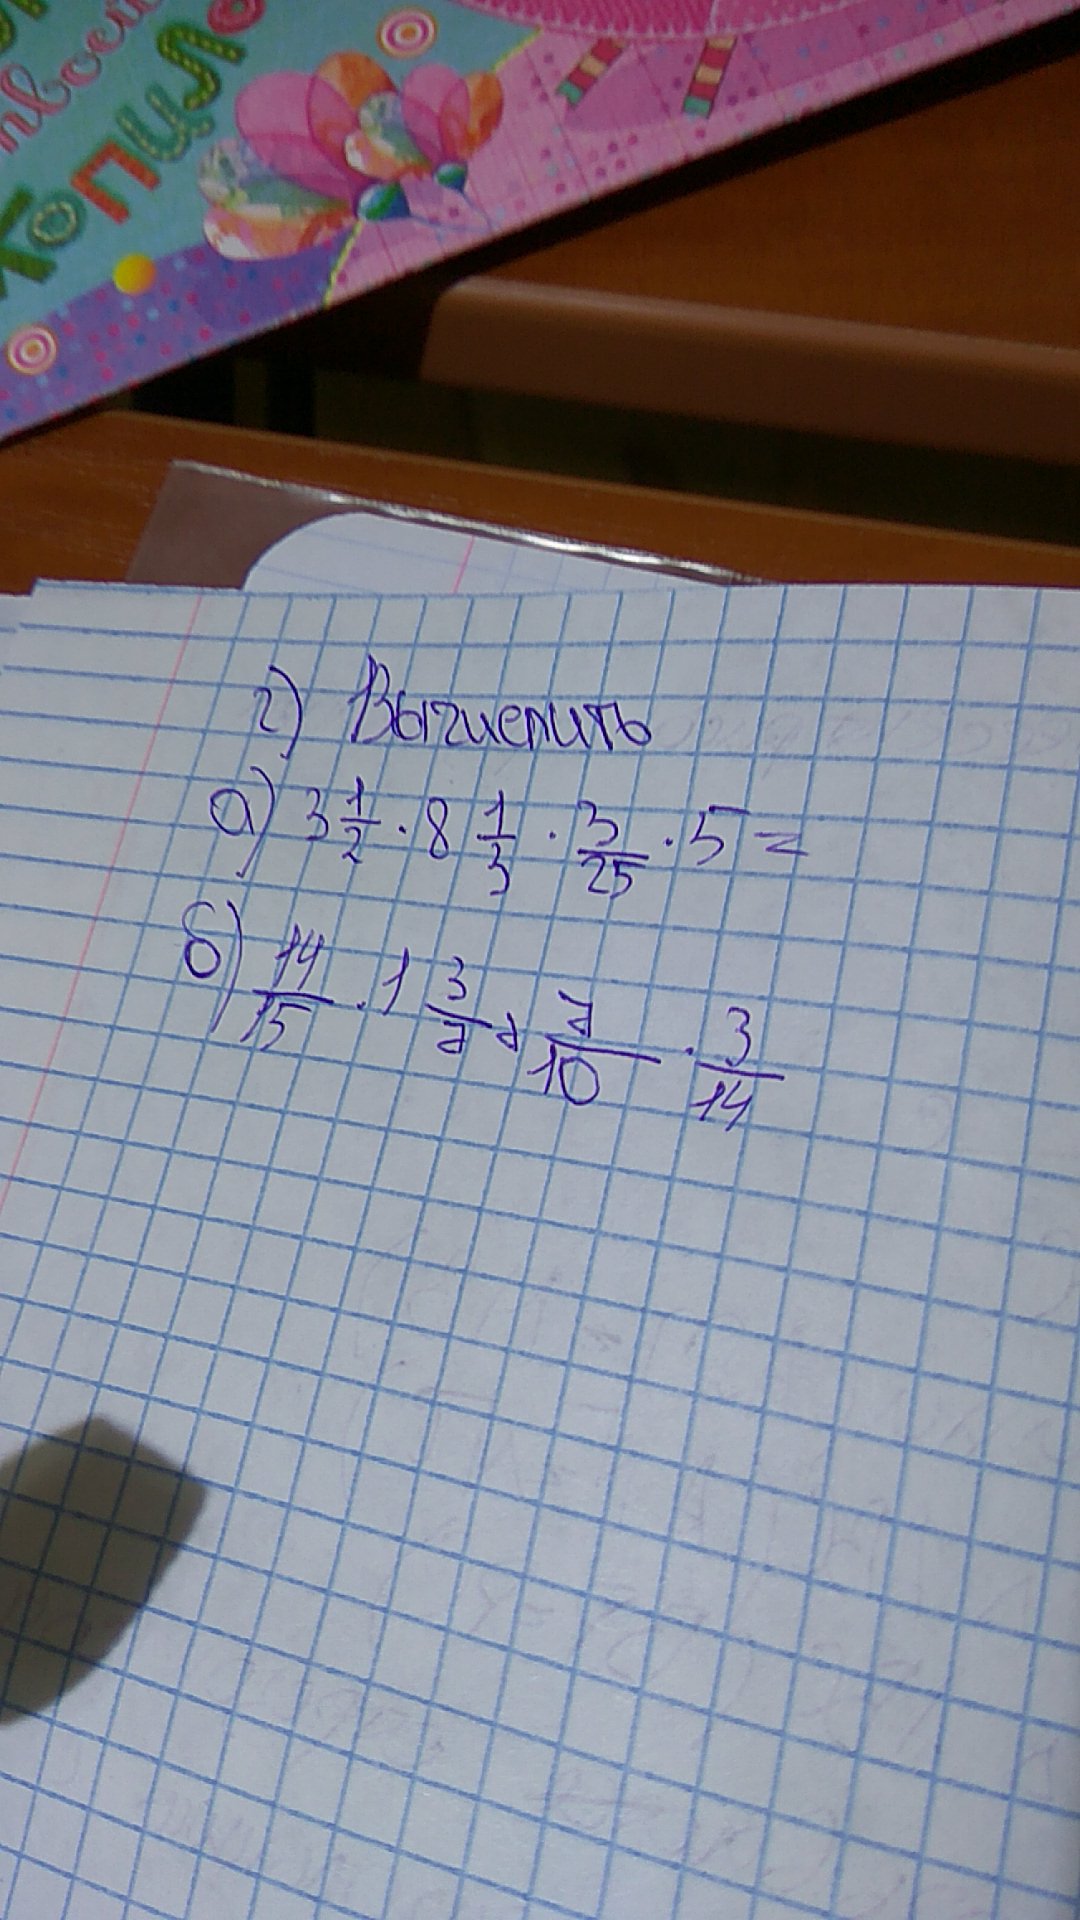 копило
г) Вычислить
а) 3 1/2 · 8 1/3 · 3/25 · 5 =
б) 14/15 · 1 3/7 + 7/10 · 3/14